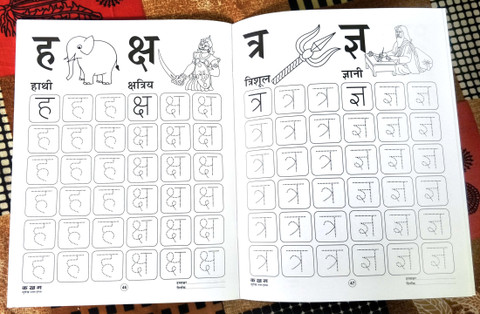 ह क्ष
हाथी क्षत्रिय
ह ह ह क्ष क्ष क्ष
ह ह ह क्ष क्ष क्ष
ह ह ह क्ष क्ष क्ष
ह ह ह क्ष क्ष क्ष
ह ह ह क्ष क्ष क्ष
ह ह ह क्ष क्ष क्ष
क ख ग
46
त्र ज्ञ
त्रिशूल ज्ञानी
त्र त्र त्र ज्ञ ज्ञ ज्ञ
त्र त्र त्र ज्ञ ज्ञ ज्ञ
त्र त्र त्र ज्ञ ज्ञ ज्ञ
त्र त्र त्र ज्ञ ज्ञ ज्ञ
त्र त्र त्र ज्ञ ज्ञ ज्ञ
त्र त्र त्र ज्ञ ज्ञ ज्ञ
क ख ग
47